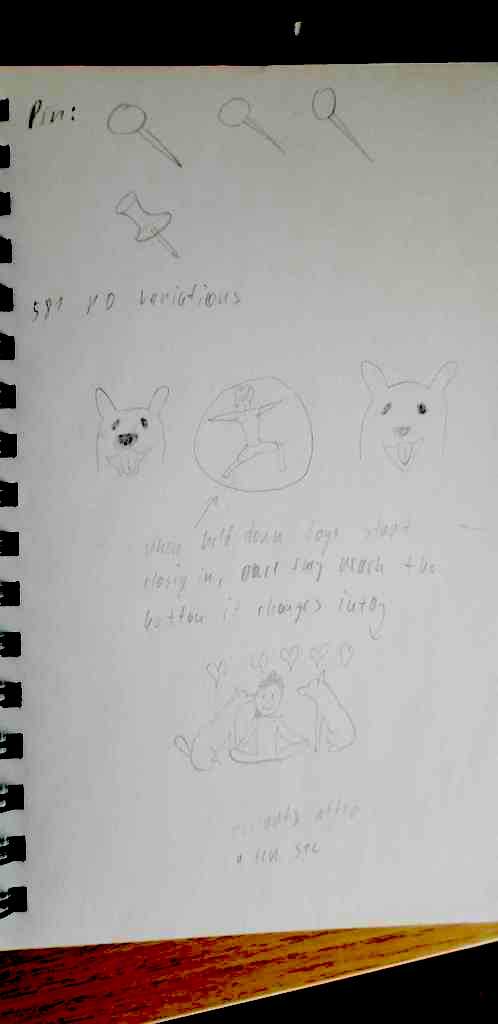 Pin:
variations
when held down dogs start
closig in, once they reach the
button it changes into
after
a few sec